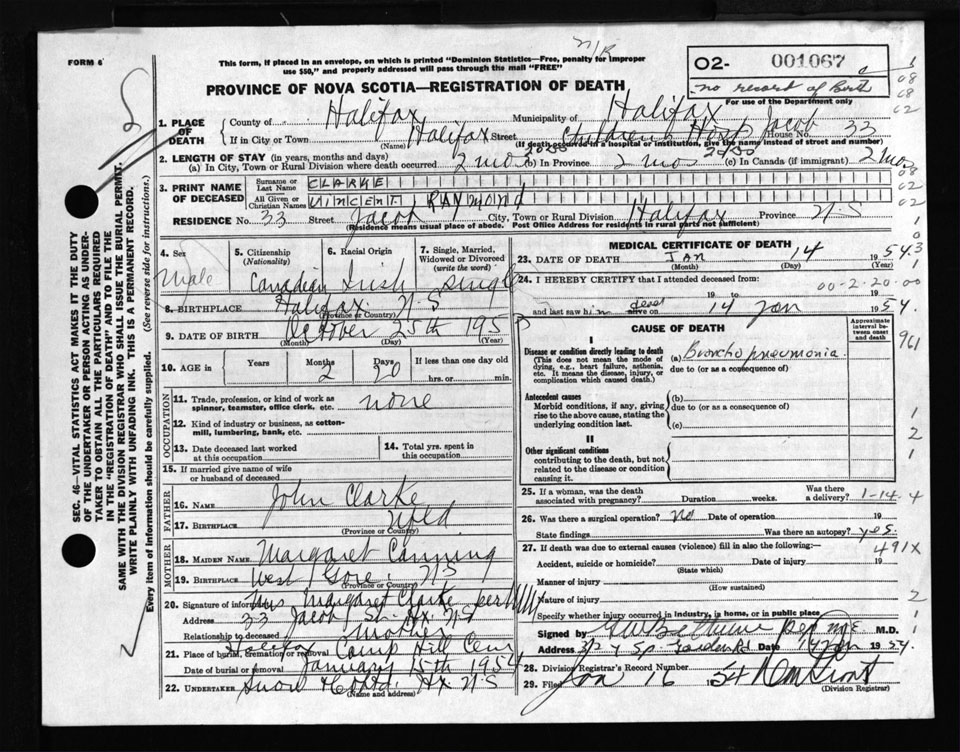 n/R
FORM 6
This form, if placed in an envelope, on which is printed "Dominion Statistics—Free, penalty for improper
use $50," and properly addressed will pass through the mail "FREE"
02- 001067
no record of birth
For use of the Department only
PROVINCE OF NOVA SCOTIA—REGISTRATION OF DEATH
1. PLACE OF DEATH
County of Halifax Municipality of Halifax
If in City or Town Halifax (Name) Street Children's Hosp Jacob House No. 33
(If death occurred in a hospital or institution, give the name instead of street and number)
2. LENGTH OF STAY (in years, months and days)
(a) In City, Town or Rural Division where death occurred 2 mos 20 (b) In Province 2 mos 20 (c) In Canada (if immigrant) 2 mos
3. PRINT NAME OF DECEASED
Surname or Last Name CLARKE
All Given or Christian Names VINCENT RAYMOND
RESIDENCE No. 33 Street Jacob City, Town or Rural Division Halifax Province N.S
(Residence means usual place of abode. Post Office Address for residents in rural parts not sufficient)
4. Sex Male
5. Citizenship (Nationality) Canadian
6. Racial Origin Irish
7. Single, Married, Widowed or Divorced (write the word) Single
8. BIRTHPLACE Halifax N.S (Province or Country)
9. DATE OF BIRTH October 25th 1953 (Month) (Day) (Year)
10. AGE in Years Months 2 Days 20 If less than one day old hrs. or min.
OCCUPATION
11. Trade, profession, or kind of work as spinner, teamster, office clerk, etc. none
12. Kind of industry or business, as cotton-mill, lumbering, bank, etc.
13. Date deceased last worked at this occupation
14. Total yrs. spent in this occupation
15. If married give name of wife or husband of deceased
FATHER
16. NAME John Clarke
17. BIRTHPLACE Nfld (Province or Country)
MOTHER
18. MAIDEN NAME Margaret Canning
19. BIRTHPLACE West Gore N.S (Province or Country)
20. Signature of informant Mrs Margaret Clarke per
Address 33 Jacob St. Hx. N.S
Relationship to deceased mother
21. Place of burial, cremation or removal Halifax Camp Hill Cem
Date of burial or removal January 15th 1954
22. UNDERTAKER Snow & Co Ltd Hx. N.S (Name and address)
MEDICAL CERTIFICATE OF DEATH
23. DATE OF DEATH JAN (Month) 14 (Day) 1954 (Year)
24. I HEREBY CERTIFY that I attended deceased from:
00-2-20-00
19 to 19
and last saw him dead alive on 14 Jan 1954.
CAUSE OF DEATH
Approximate interval between onset and death
I
Disease or condition directly leading to death
(This does not mean the mode of dying, e.g., heart failure, asthenia, etc. It means the disease, injury, or complication which caused death.)
(a) Bronchopneumonia
due to (or as a consequence of)
Antecedent causes
Morbid conditions, if any, giving rise to the above cause, stating the underlying condition last.
(b)
due to (or as a consequence of)
(c)
II
Other significant conditions
contributing to the death, but not related to the disease or condition causing it.
25. If a woman, was the death associated with pregnancy? Duration weeks. Was there a delivery? 1-14-4
26. Was there a surgical operation? No Date of operation 19
State findings Was there an autopsy? yes.
27. If death was due to external causes (violence) fill in also the following:— 491X
Accident, suicide or homicide? (State which) Date of injury 19
Manner of injury (How sustained)
Nature of injury
Specify whether injury occurred in industry, in home, or in public place
Signed by M.D.
Address Sp. Garden Rd Date Jan 1954.
28. Division Registrar's Record Number
29. Filed Jan 16 1954 (Division Registrar)
SEC. 46—VITAL STATISTICS ACT MAKES IT THE DUTY
OF THE UNDERTAKER OR PERSON ACTING AS UNDER-
TAKER TO OBTAIN ALL THE PARTICULARS REQUIRED
IN THE "REGISTRATION OF DEATH" AND TO FILE THE
SAME WITH THE DIVISION REGISTRAR WHO SHALL ISSUE THE BURIAL PERMIT.
WRITE PLAINLY WITH UNFADING INK. THIS IS A PERMANENT RECORD.
Every item of information should be carefully supplied. (See reverse side for instructions.)
1
08
08
02
08
02
02
0
3
1
961
1
2
1
2
1
1